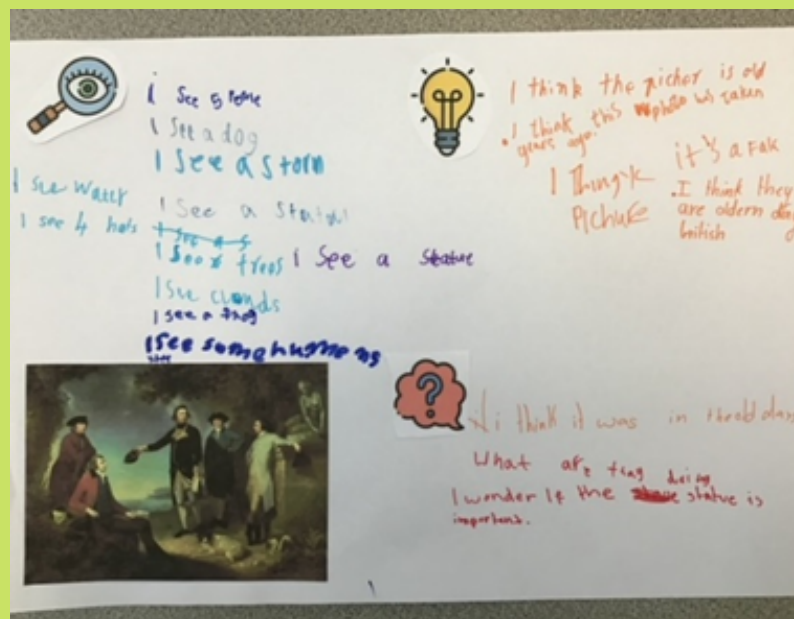 i see 5 Peme
I see a dog
I see a storm
I see water
I see a Statui
I see 4 hats
I see a s
I see trees
I see a Stature
I see clouds
I see a frog
I see some humans
I think the picher is old
. I think this photo was taken
years ago.
it's a Fak
I Thingk
PichuRe
. I think they
are oldern
british
i think it was in the old days
What are they doing
I wonder if the statue is
important.